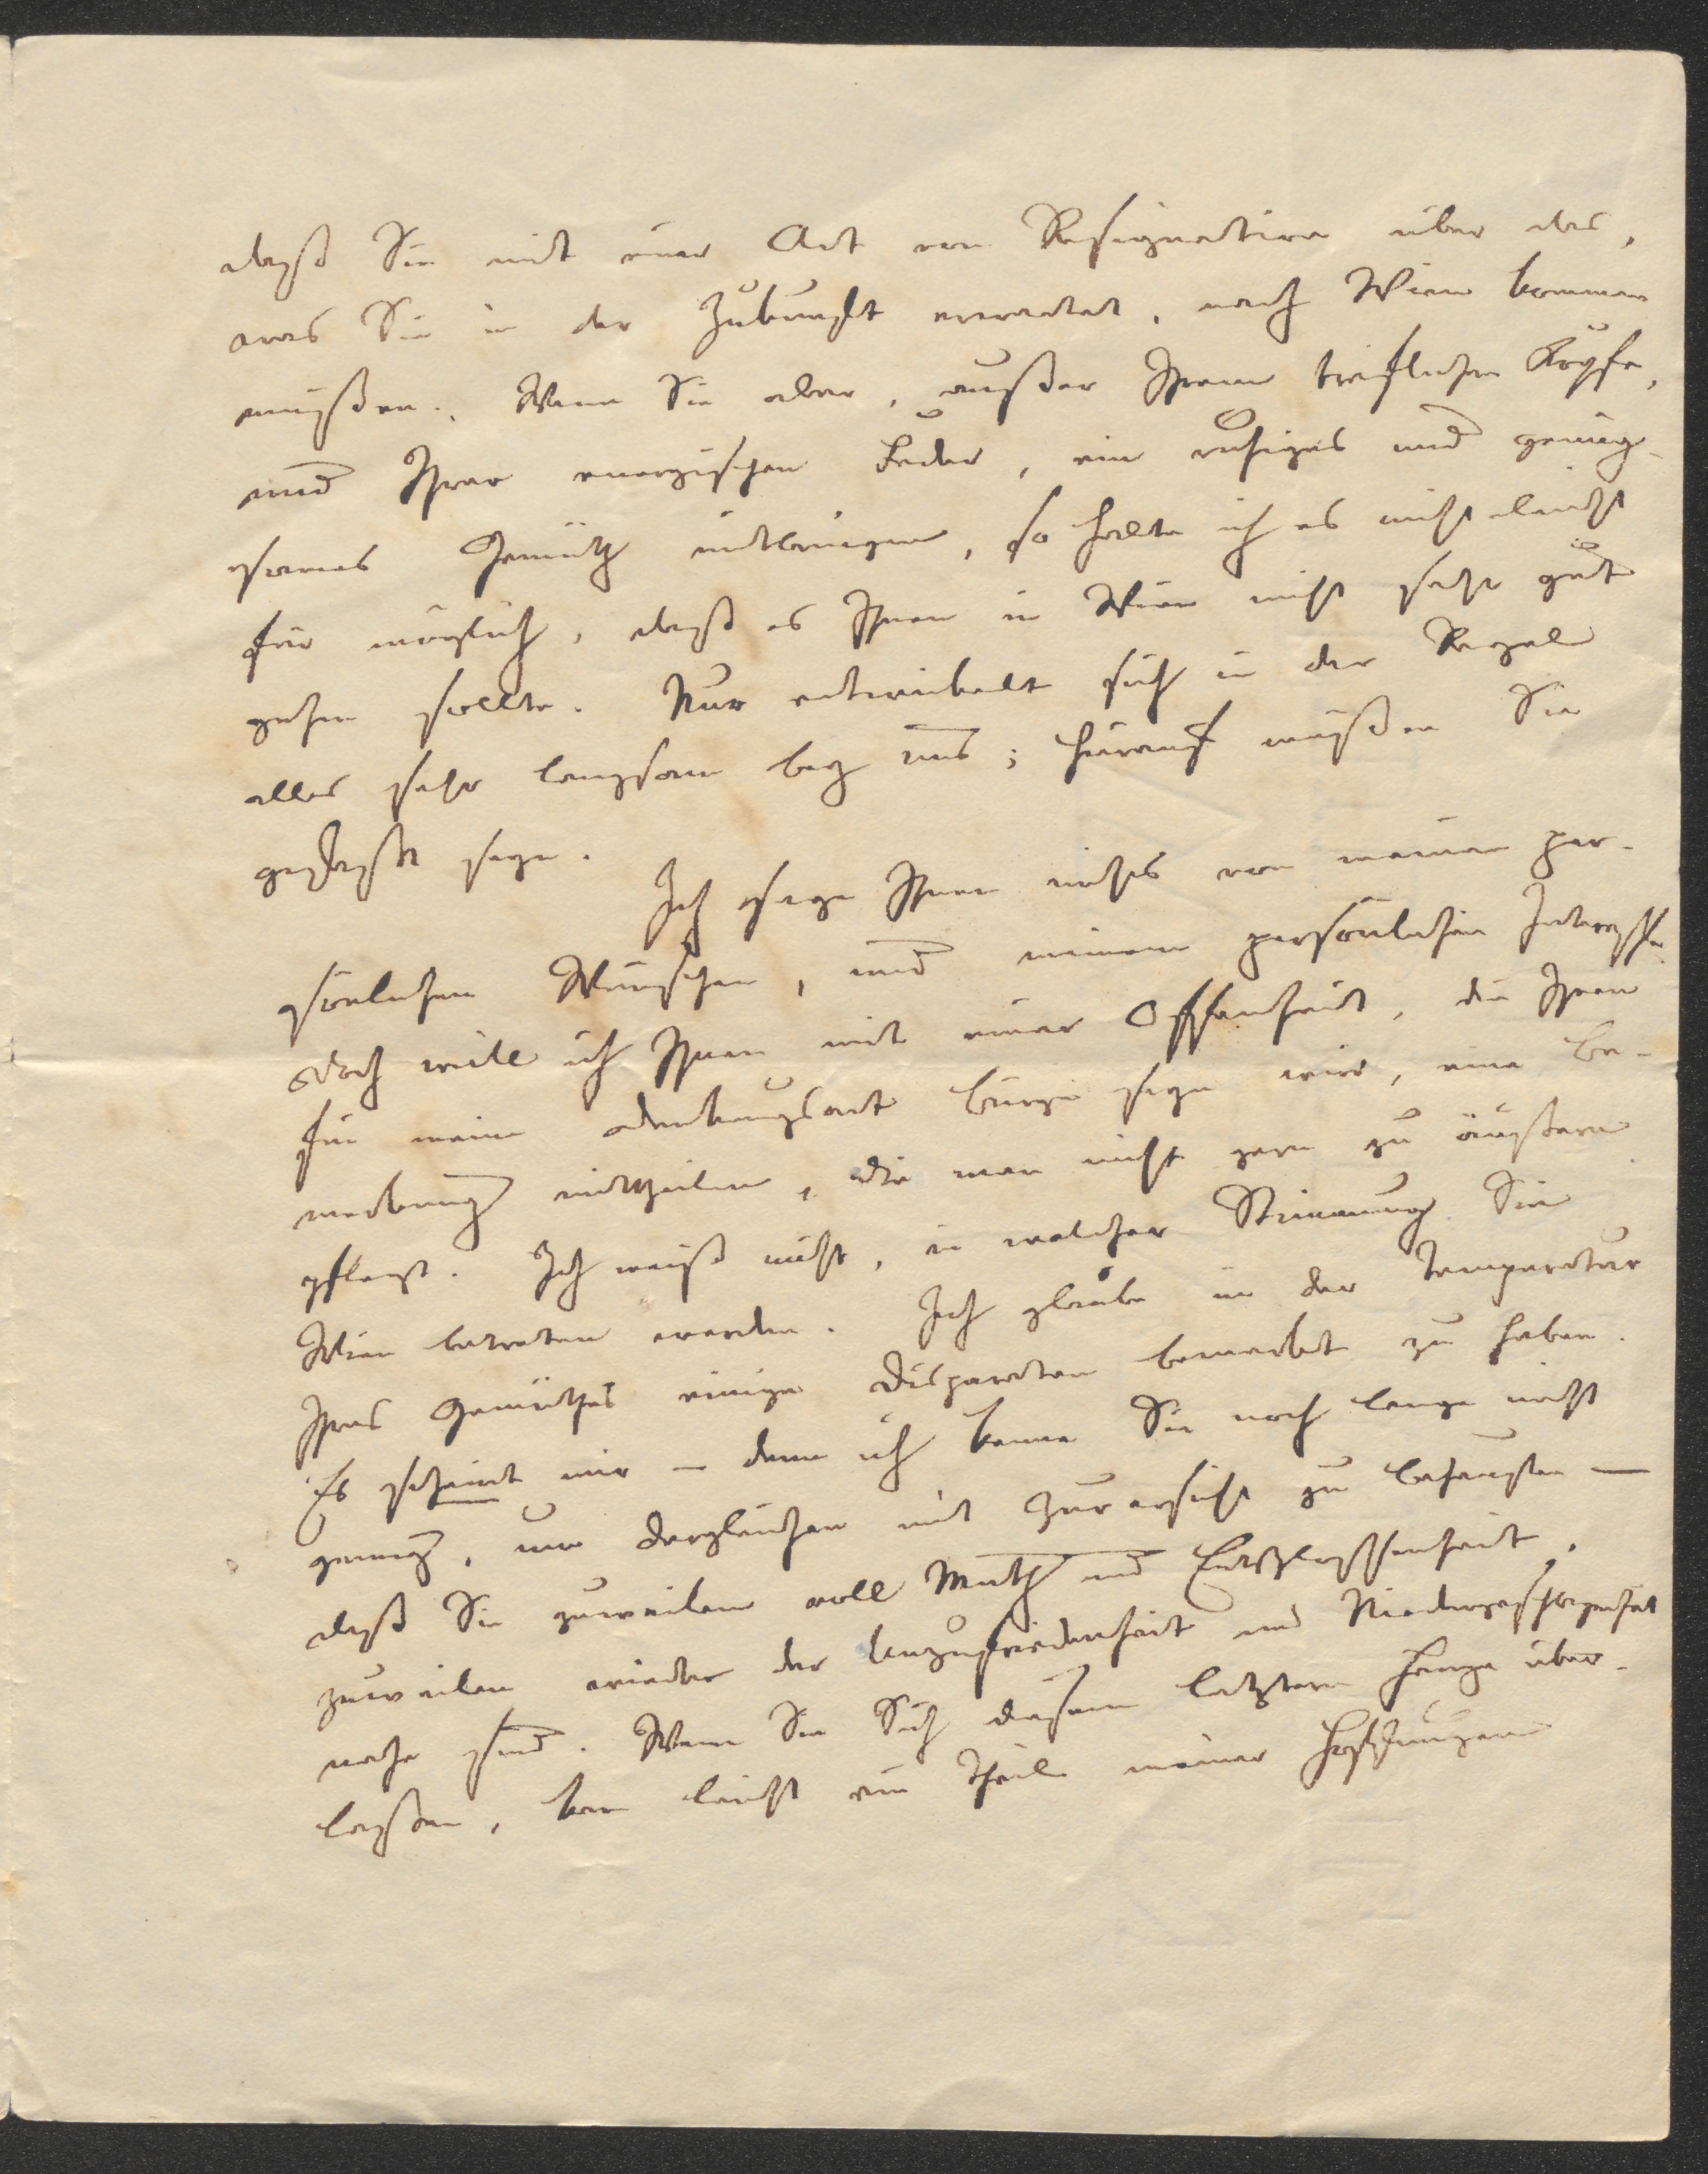 daß Sie mit einer Art von Resignation über das,
was Sie in der Zukunft erwartet, nach Wien kommen
müßen. Wenn Sie aber, außer Ihrem treflichen Kopfe,
und Ihrer energischen Feder, ein ruhiges und genüg-
sames Gemüth mitbringen, so halte ich es nicht leicht
für möglich, daß es Ihnen in Wien nicht sehr gut
gehen sollte. Nur entwickelt sich in der Regel
alles sehr langsam bey uns; hierauf müßen Sie
gefaßt seyn.
Ich sage Ihnen nichts von meinen per-
sönlichen Wünschen, und meinem persönlichen Interesse.
Doch will ich Ihnen mit einer Offenheit, die Ihnen
für meine Denkungsart Bürge seyn wird, eine Be-
merkung mittheilen, die man nicht gern zu äußern
pflegt. Ich weiß nicht, in welcher Stimmung Sie
Wien betreten werden. Ich glaube in der Temperatur
Ihres Gemüthes einige Disparaten bemerkt zu haben.
Es scheint mir – denn ich kenne Sie noch lange nicht
genug, um dergleichen mit Zuversicht zu behaupten –
daß Sie zuweilen voll Muth und Entschlossenheit,
zuweilen wieder der Unzufriedenheit und Niedergeschlagenheit
nahe sind. Wenn Sie Sich diesem letztern Hange über-
laßen, kan leicht ein Theil meiner Hoffnungen